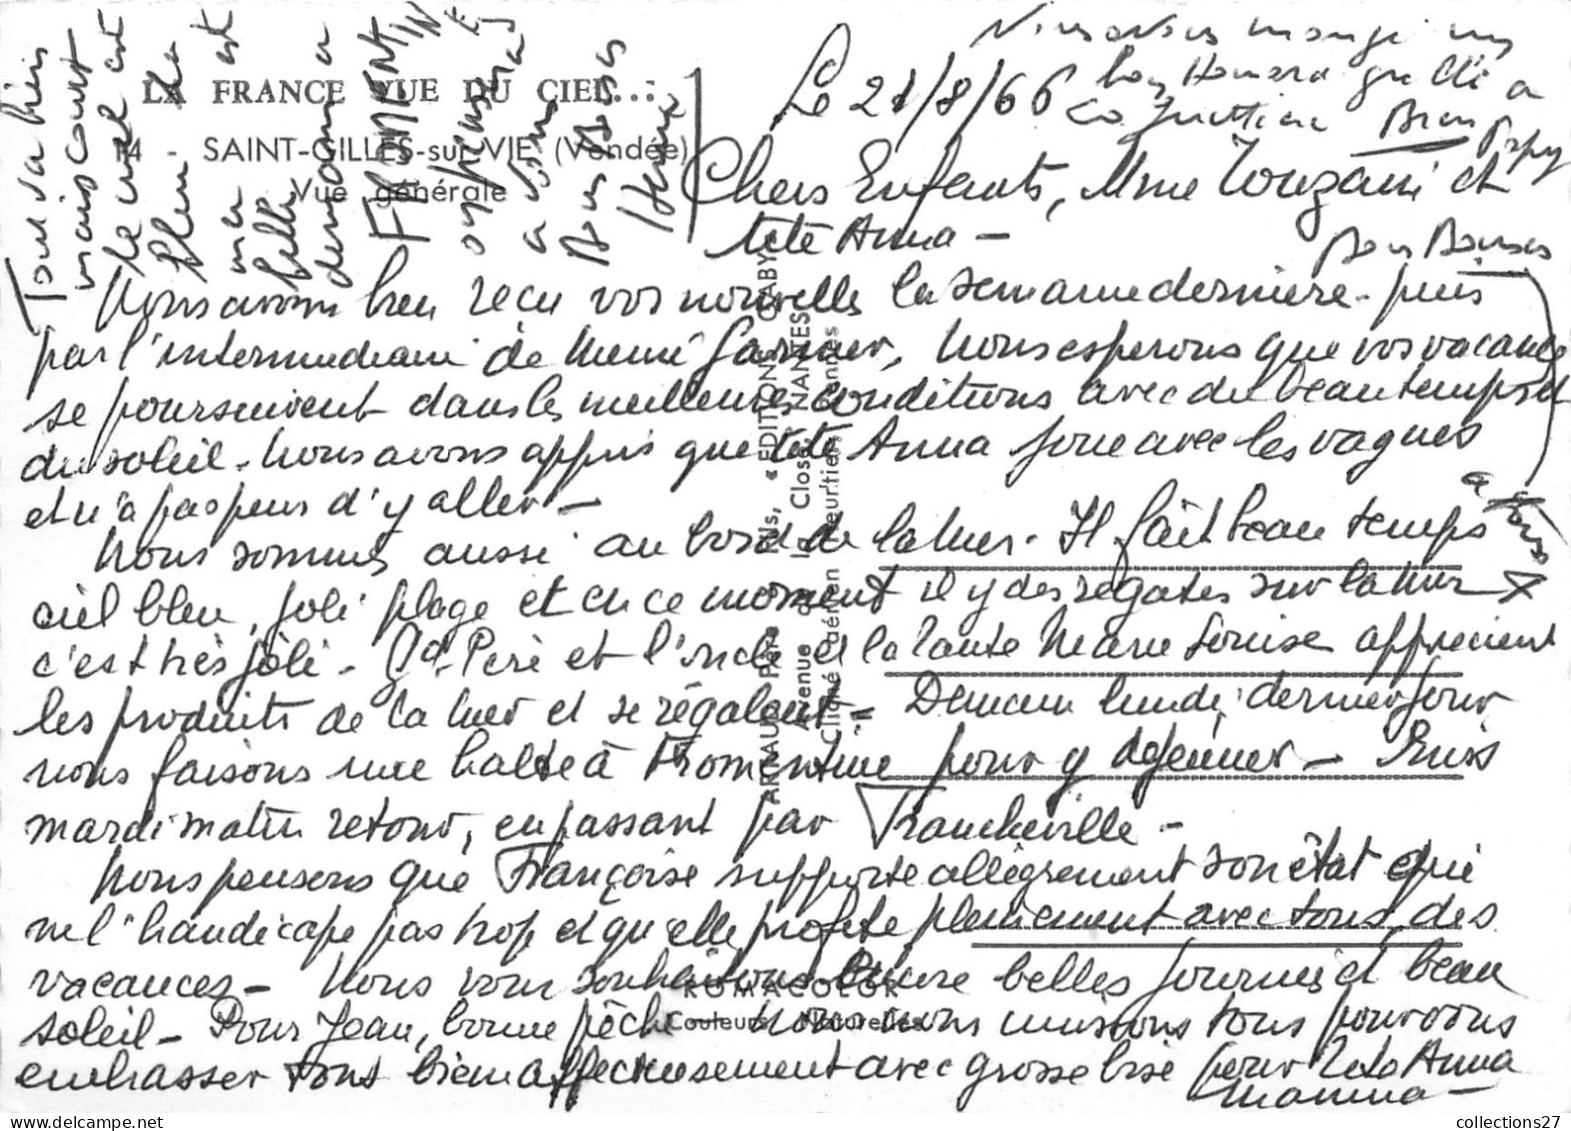 LA FRANCE VUE DU CIEL...
74 - SAINT-GILLES-sur-VIE (Vendée)
Vue générale
Tout va bien
mais court
le ciel est
bleu la
mer est
belle
demain a
FROMENTINE
à vous
Bons Baisers
Nous avons mangé un
bon Homard grillé a
Bien
Papy
Bons Baisers
a tous
Le 21/8/66
Chers Enfants, Mme Touzani et
tété Anna -
Nous avons bien recu vos nouvelles la semaine dernière - puis
par l'intermediaire de Mémé Garnier, nous esperons que vos vacances
se poursuivent dans les meilleures conditions avec du beau temps et
du soleil. Nous avons appris que tété Anna joue avec les vagues
et n'a pas peur d'y aller -
Nous sommes aussi au bord de la mer. Il fait beau temps
ciel bleu, joli plage et en ce moment il y des régates sur la mer
c'est très joli - Gd Père et l'oncle et la tante Marie Louise apprecient
les produits de la mer et se régalent - Demain lundi, dernier jour
nous faisons une halte à Fromentine pour y dejeuner - Puis
mardi matin retour, en passant par Francheville -
Nous pensons que Françoise supporte allègrement son état qui
ne l'handicape pas trop et qu'elle profite pleinement avec tous des
vacances - Nous vous souhaitons encore belles journées et beau
soleil - Pour Jean, bonne pêche - Nous nous unissons tous pour vous
embrasser tous bien affectueusement avec grosse bise pour Tété Anna
Mamina -
ARTAUD Père et Fils, « EDITIONS GABY »
Avenue de la Close, NANTES
Cliché aérien Heurtier, Rennes
ROMACOLOR
Couleurs Naturelles
collections27